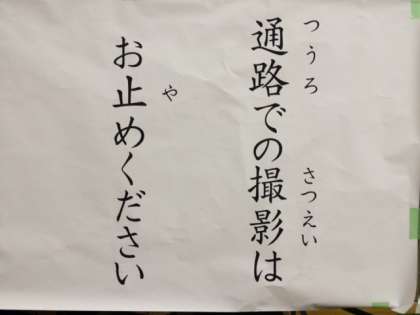 通路での撮影は
お止めください
つうろ
さつえい
や